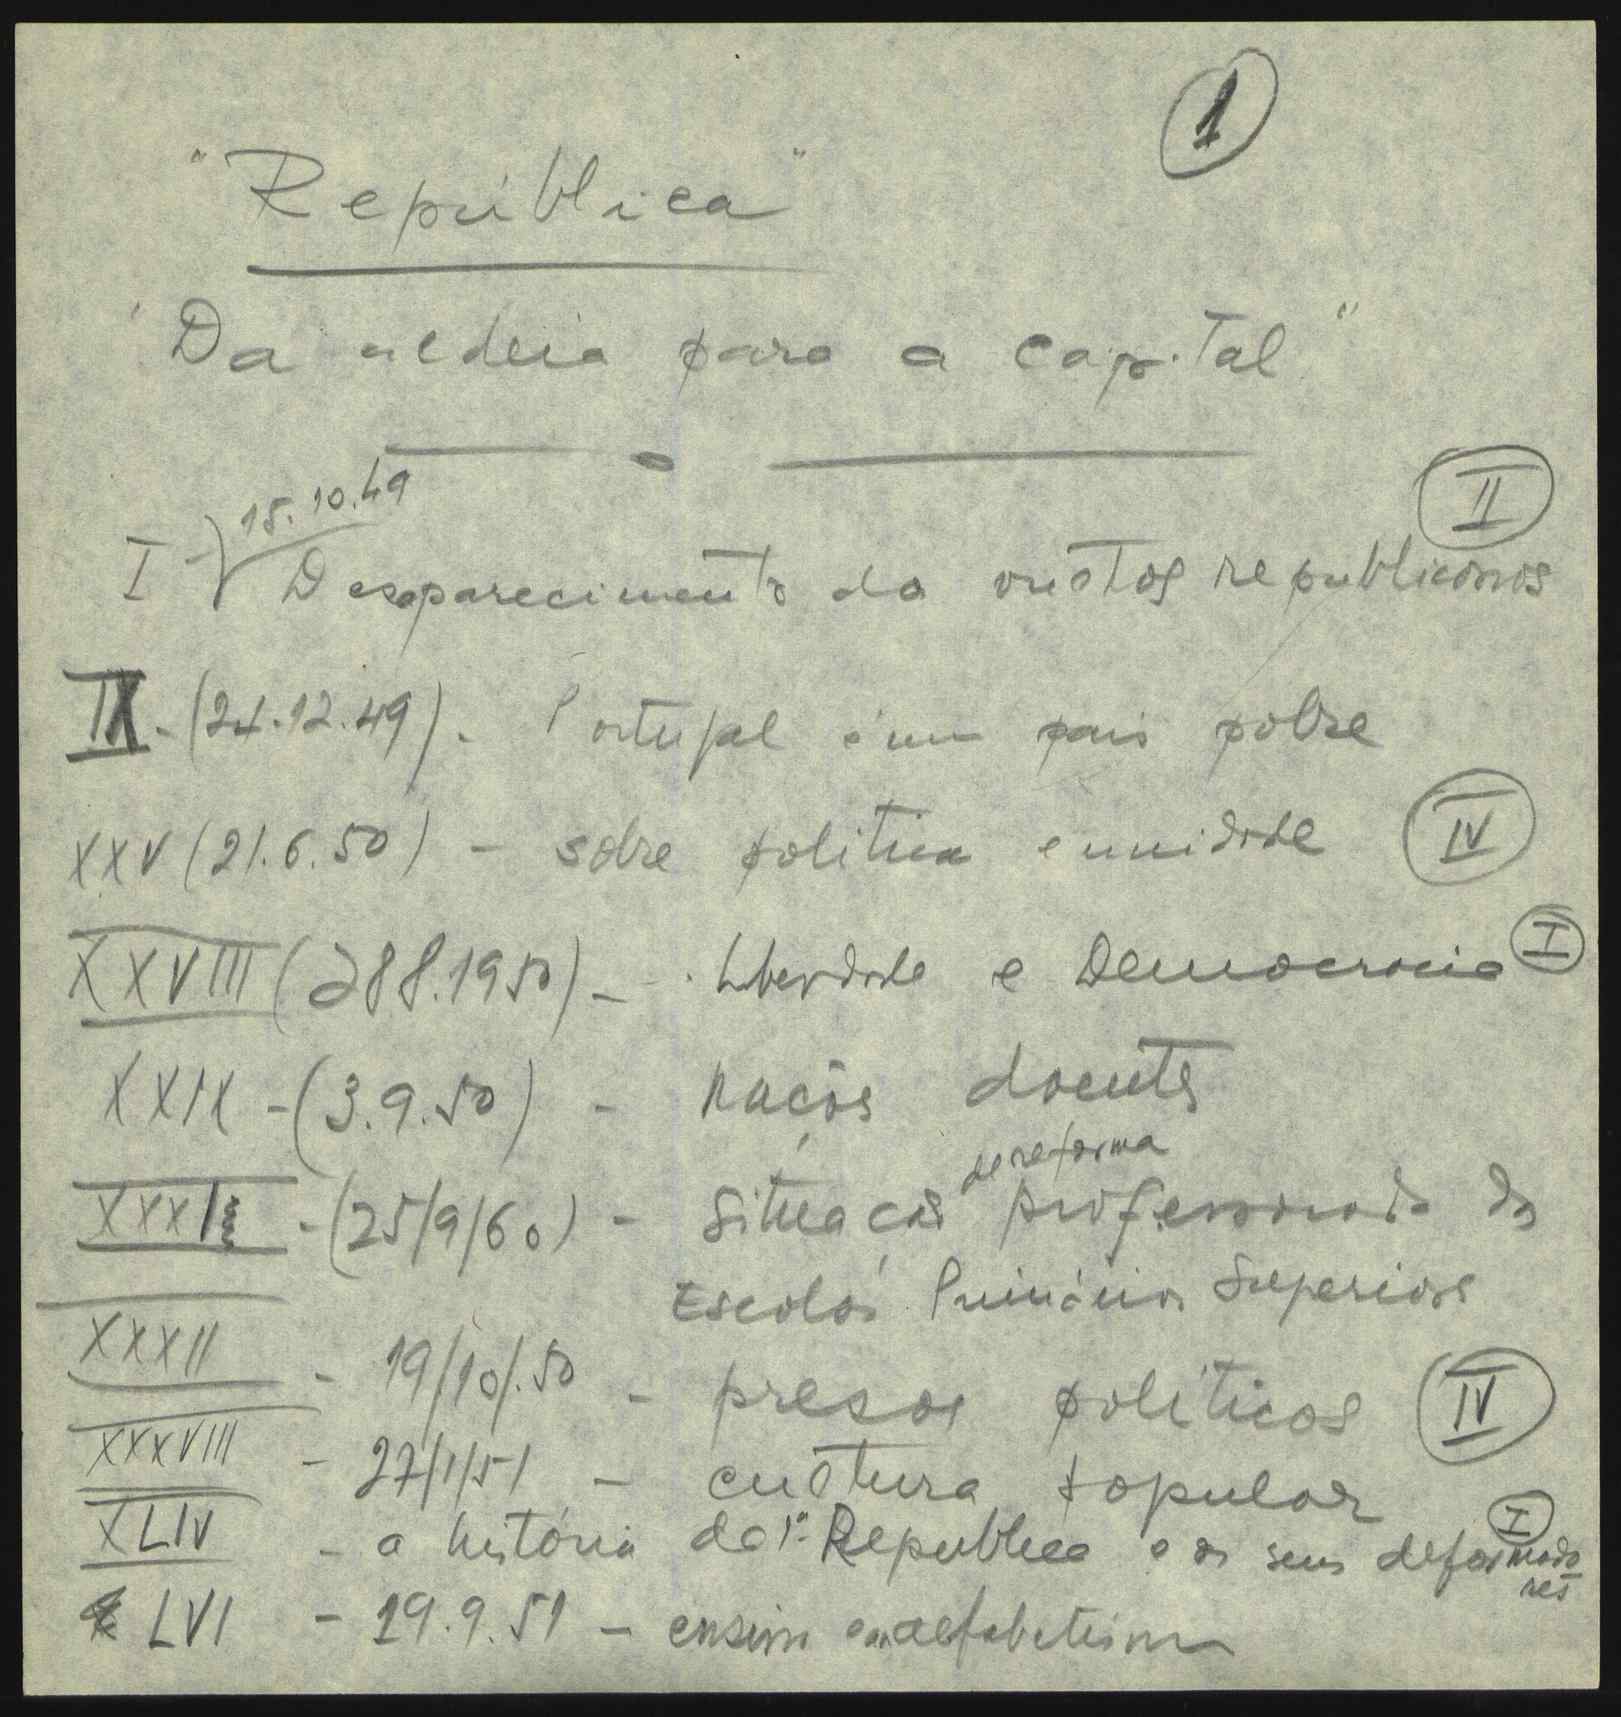 1
"República"
"Da aldeia para a capital"
II
15.10.49
I - Desaparecimento de vultos republicanos
IX - (24.12.49) - Portugal é um país pobre
XXV (21.6.50) - sobre politica e unidade IV
XXVIII (28 8.1950) - Liberdade e Democracia I
XXIX - (3.9.50) - nações doentes
de reforma
XXXI - (25/9/60) - Situação professorado das
Escolas Primárias Superiores
XXXII - 19/10/.50 - presos políticos IV
XXXVIII - 27/1/51 - cultura popular
XLIV - a história da 1ª República e os seus deformado I
res
LVI - 19.9.51 - ensino e analfabetismo